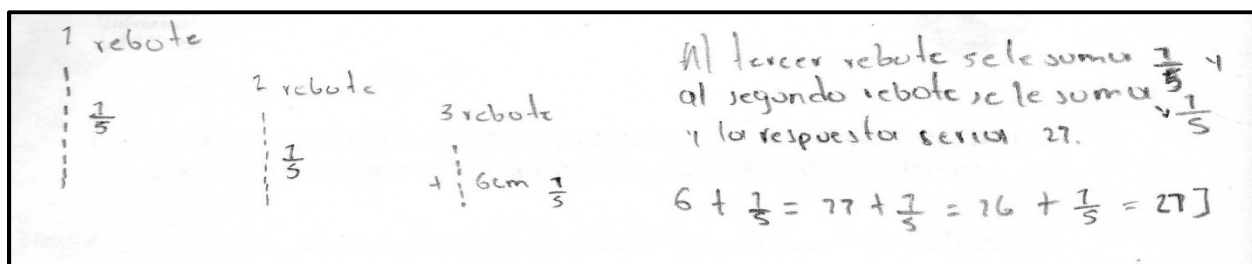 1 rebote
1/5
2 rebote
1/5
3 rebote
+ 6cm 1/5
Al tercer rebote se le suma 1/5 y
al segundo rebote se le suma 1/5
y la respuesta seria 21.
6 + 1/5 = 11 + 1/5 = 16 + 1/5 = 21]